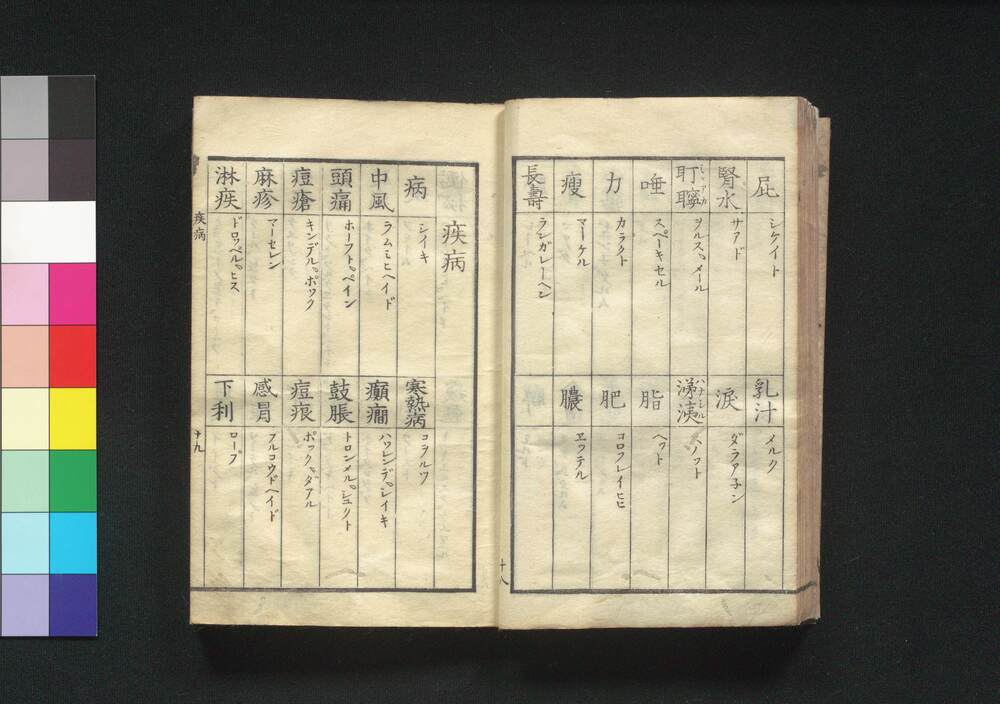 屁
シケイト
腎水
サアド
耵聹
ミヽアカ
ヲルス゜メール
唾
スペーキセル
力
カラクト
瘦
マーゲル
長壽
ランガレーヘン
乳汁
メルク
淚
ダラア子ン
涕洟
ハナミヅ
スノット
脂
ヘット
肥
コロフレイヒヒ
膿
ヱッテル
十八
疾病
病
シイキ
中風
ラムミヒヘイド
頭痛
ホーフト゜ペイン
痘瘡
キンデル゜ポック
麻疹
マーセレン
淋疾
ドロッペル゜ピス
寒熱病
コヲルツ
癲癇
ハルレンデ゜シイキ
鼓脹
トロンメル゜シュクト
痘痕
ポック゜ダアル
感冒
フルコウドヘイド
下利
ロープ
疾病
十九